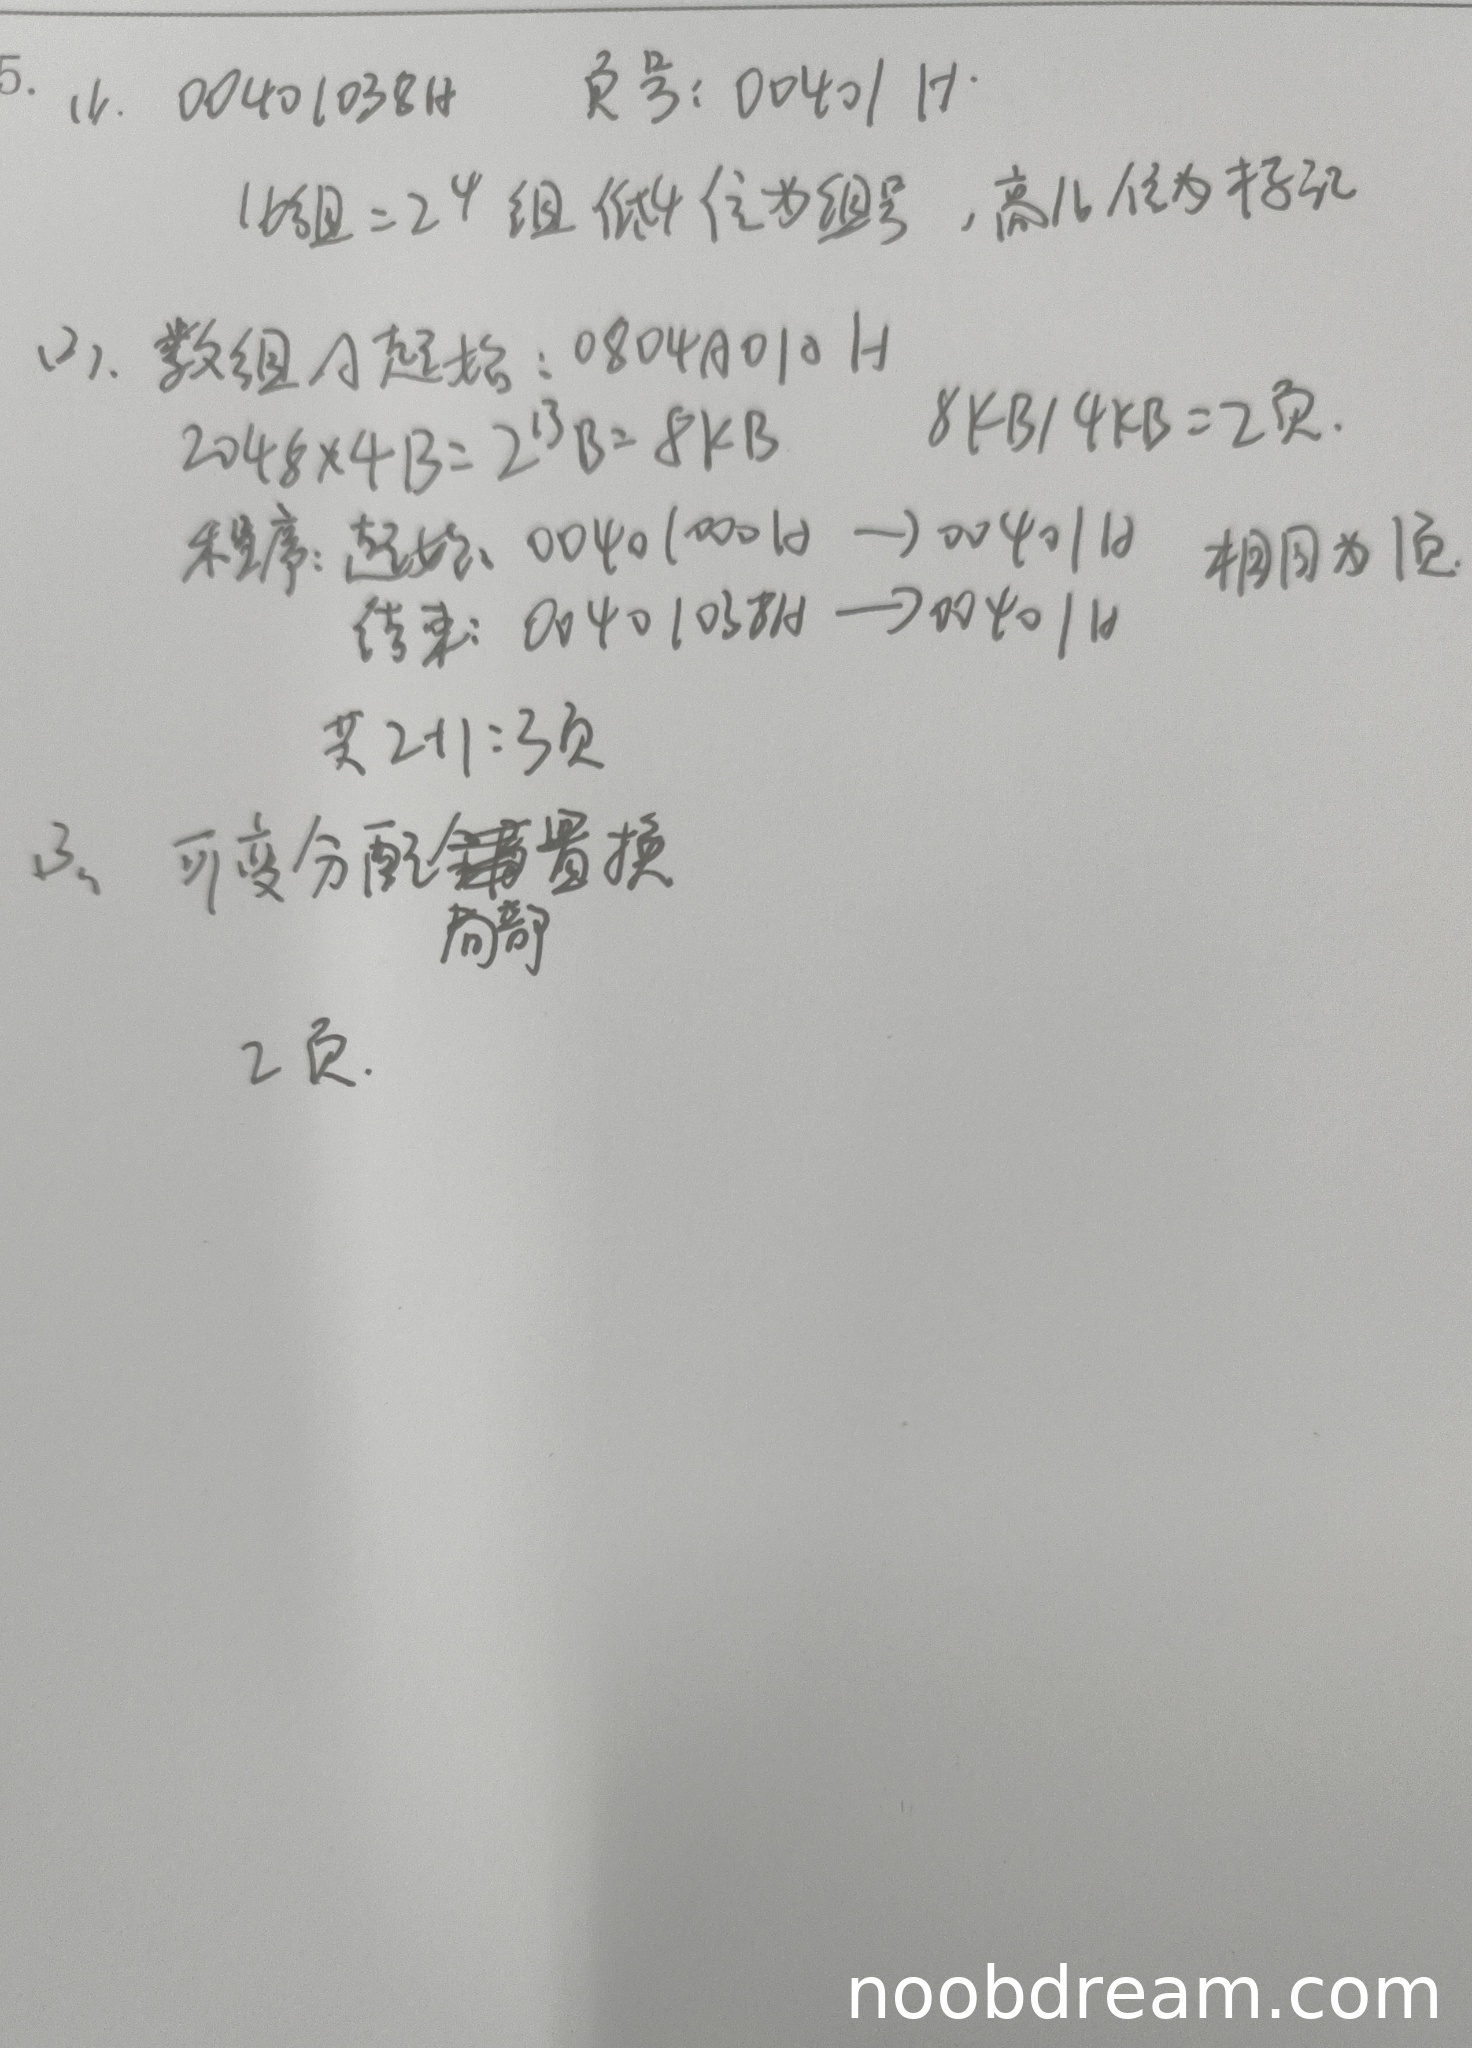 5. (1). 00401038H 页号: 00401H.
16组=2^4组 低4位为组号, 高16位为标记
(2). 数组A起始: 0804A010H
2048×4B=2^13B=8KB 8KB/4KB=2页.
程序: 起始: 00401000H→00401H 相同为1页.
结束: 00401038H→00401H
共2+1=3页
(3) 可变分配置换
局部
2页.
noobdream.com